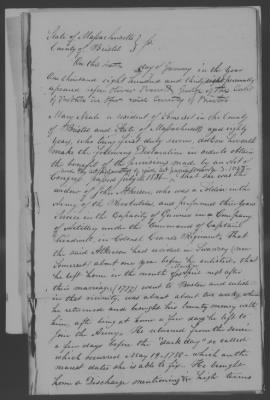 State of Massachusetts } ss.
County of Bristol }
On this day of January in the Year
One thousand eight hundred and thirty eight personally
appeared before Judge of the Court
of Probate in & for said County of Bristol
Mary a resident of in the County
of Bristol and State of Massachusetts aged eighty
Years, who being first duly sworn, doth on her oath
make the following Declaration in order to obtain
the benefit of the provisions made by an Act of
Congress passed July 4th 1836. That she is the
widow of John Atherson, who was a Soldier in the
Army of the Revolution and performed three Years
Service in the Capacity of Gunner in a Company
of Artillery under the Command of Captain
in Colonel Cranes Regiment; that
the said Atherson had
about one year before he enlisted, that
he left home in the month of April next after
their marriage, (1777) went to Boston and
in that vicinity, was absent about when
he returned and brought his bounty money with
him after being at home a few days he left to
join the Army. He returned from the Service
a few days before the "dark day" so called
which occurred May 19. 1780 - which are the
nearest dates she is able to fix. He brought
home a Discharge mentioning his